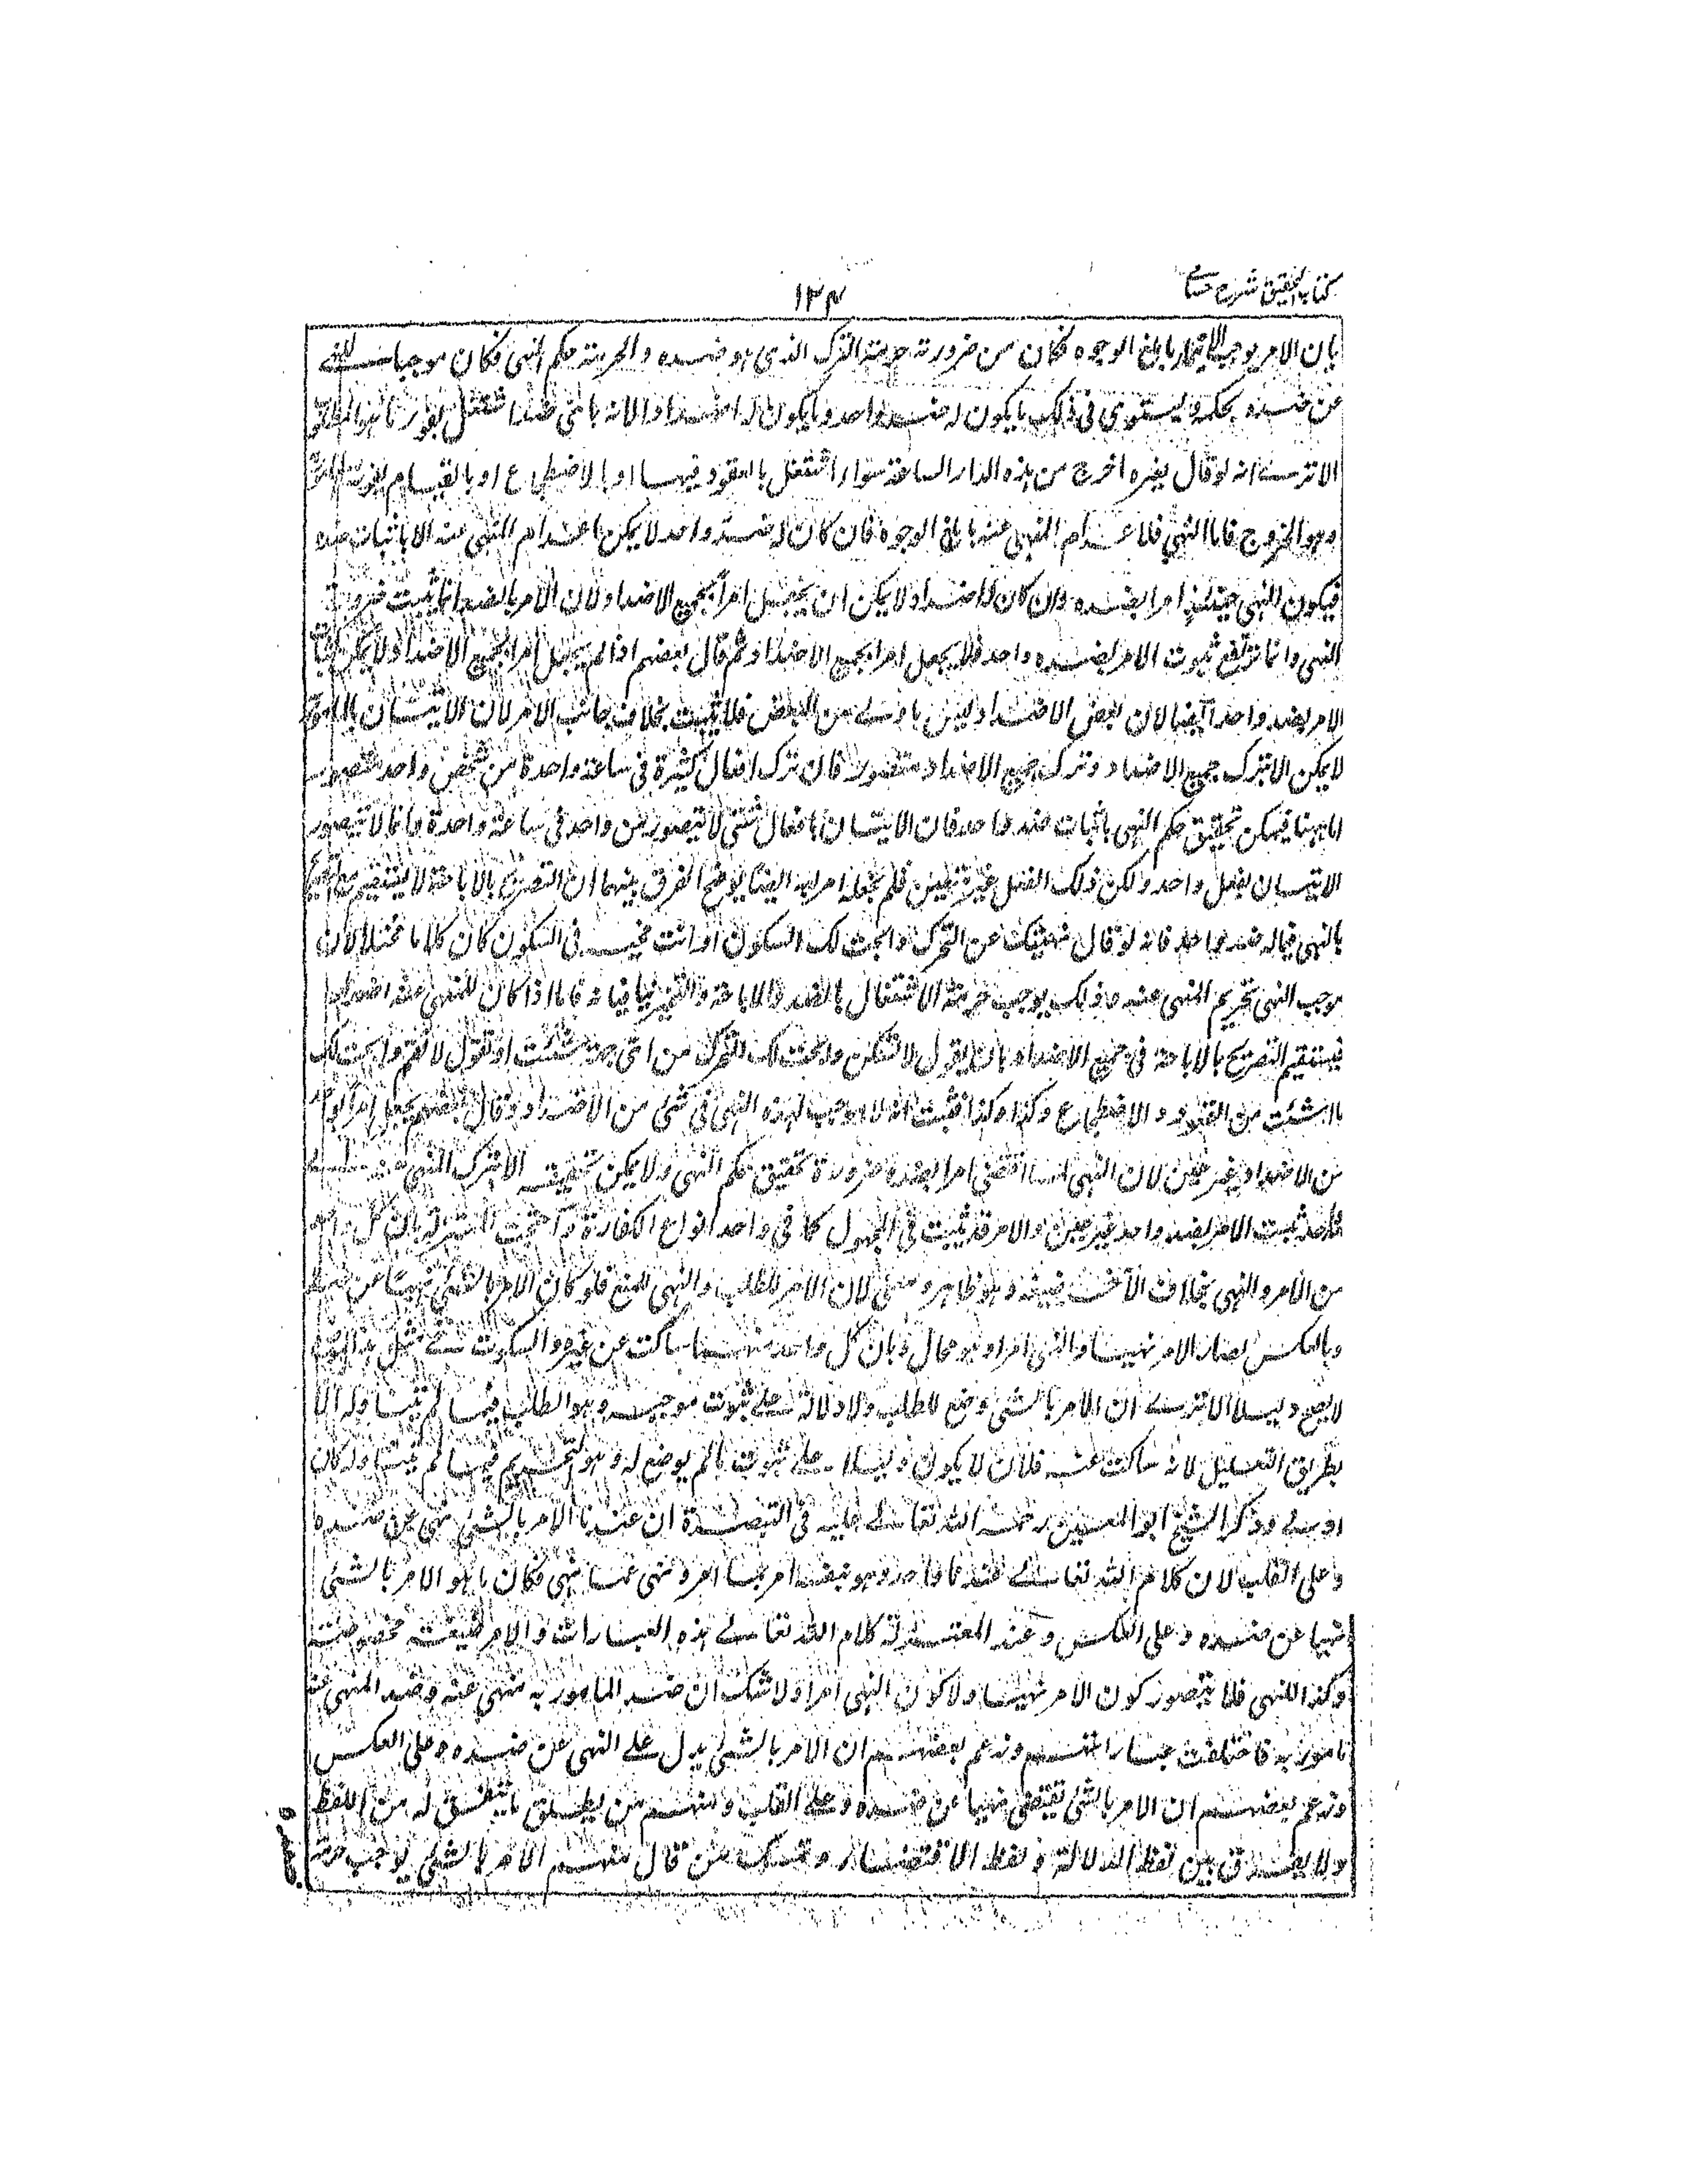 كتاب التحقيق شرح حسامي
١٣٤
بان الامر يوجب الايتمار بابلغ الوجوه فكان من ضرورته حرمة الترك الذى هو ضده والحرمة حكم النهى فكان موجبا للنهى
عن ضده بحكمه ويستوى فى ذلك ما يكون له ضد واحد وما يكون له اضداد لانه باى ضد اشتغل يفوت ما هو المطلوب
الا ترى انه لو قال لغيره اخرج من هذه الدار الساعة سواء اشتغل بالقعود فيها او بالاضطجاع او بالقيام يفوت
وهو الخروج فاما النهى فلاعدام المنهى عنه بابلغ الوجوه فان كان له ضد واحد لا يمكن اعدام المنهى عنه الا باثبات ضده
فيكون النهى حينئذ امرا بضده وان كان له اضداد لا يمكن ان يجعل امرا بجميع الاضداد لان الامر بالضد انما يثبت ضرورة
النهى وانما ترتفع بثبوت الامر بضده واحد فلا يجعل امرا بجميع الاضداد ثم قال بعضهم اذا لم يجعل امرا بجميع الاضداد ولا يمكن
الامر بضد واحد ايضا لان بعض الاضداد ليس باولى من البعض فلا يثبت بخلاف جانب الامر لان الاتيان بالمامور
لا يمكن الا بترك جميع الاضداد وترك جميع الاضداد متصور فان ترك افعال كثيرة فى ساعة واحدة من شخص واحد متصور
اما ههنا فيمكن تحقيق حكم النهى باثبات ضد واحد فان الاتيان بافعال شتى لا يتصور من واحد فى ساعة واحدة وانما يتصور
الاتيان بفعل واحد ولكن ذلك الفعل غير متعين فلم نجعله امرا به ايضا يوضح الفرق بينهما ان التصريح بالاباحة لا يستقيم مع
بالنهى فيما له ضد واحد فانه لو قال نهيتك عن التحرك وابحت لك السكون او انت مخير فى السكون كان كلاما مختلا لان
موجب النهى تحريم المنهى عنه وذلك يوجب حرمة الاشتغال بالضد والاباحة والتخيير ينافيانه فاما اذا كان للمنهى عنه اضداد
فيستقيم التصريح بالاباحة فى جميع الاضداد بان يقول لا تسكن وابحت لك التحرك من اى جهة شئت او تقول لا تقم وابحت لك
ما شئت من القعود والاضطجاع وكذا وكذا فثبت انه لا موجب لهذه النهى فى شئ من الاضداد وقال بعضهم يجعل امرا بواحد
من الاضداد غير عين لان النهى لما اقتضى امرا بضده ضرورة تحقيق حكم النهى ولا يمكن تحقيقه الا بترك المنهى
يثبت الامر بضد واحد غير معين والامر قد يثبت فى المجهول كما فى واحد انواع الكفارة واحتجت المعتزلة بان كل واحد
من الامر والنهى بخلاف الآخر صيغة وهو ظاهر ومعنى لان الامر للطلب والنهى للمنع فلو كان الامر بالشئ نهيا عن ضده
وبالعكس لصار الامر نهيا والنهى امرا وهو محال وبان كل واحد منهما ساكت عن غيره والسكوت فى مثل هذا
لا يصح دليلا الا ترى ان الامر بالشئ وضع للطلب ولا دلالة له على ثبوت موجبه وهو الطلب فيما لم يتناوله الا
بطريق التعليل لانه ساكت عنه فلان لا يكون دليلا على ثبوت ما لم يوضع له وهو التحريم فيما لم يتناوله كان
اولى وذكر الشيخ ابو المعين رحمة الله تعالى عليه فى التبصرة ان عندنا الامر بالشئ نهى عن ضده
وعلى القلب لان كلام الله تعالى عندنا واحد وهو بنفسه امر بما امر ونهى عما نهى فكان ما هو الامر بالشئ
نهيا عن ضده وعلى العكس وعند المعتزلة كلام الله تعالى هذه العبارات والامر صيغة مخصوصة
وكذا النهى فلا يتصور كون الامر نهيا ولا كون النهى امرا ولا شك ان ضد المامور به منهى عنه وضد المنهى عنه
مامور به فاختلفت عباراتهم وزعم بعضهم ان الامر بالشئ يدل على النهى عن ضده وعلى العكس
وزعم بعضهم ان الامر بالشئ يقتضى نهيا عن ضده وعلى القلب ومنهم من يطلق ما يتفق له من اللفظ
ولا يفرق بين لفظ الدلالة ولفظ الاقتضاء وتمسك من قال منهم الامر بالشئ يوجب حرمة